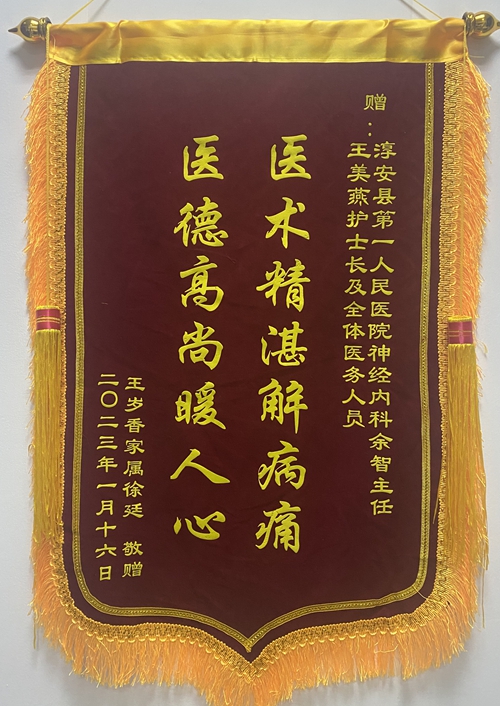 赠：
淳安县第一人民医院神经内科余智主任
王美燕护士长及全体医务人员
医术精湛解病痛
医德高尚暖人心
王岁香家属徐廷 敬赠
二〇二三年一月十六日